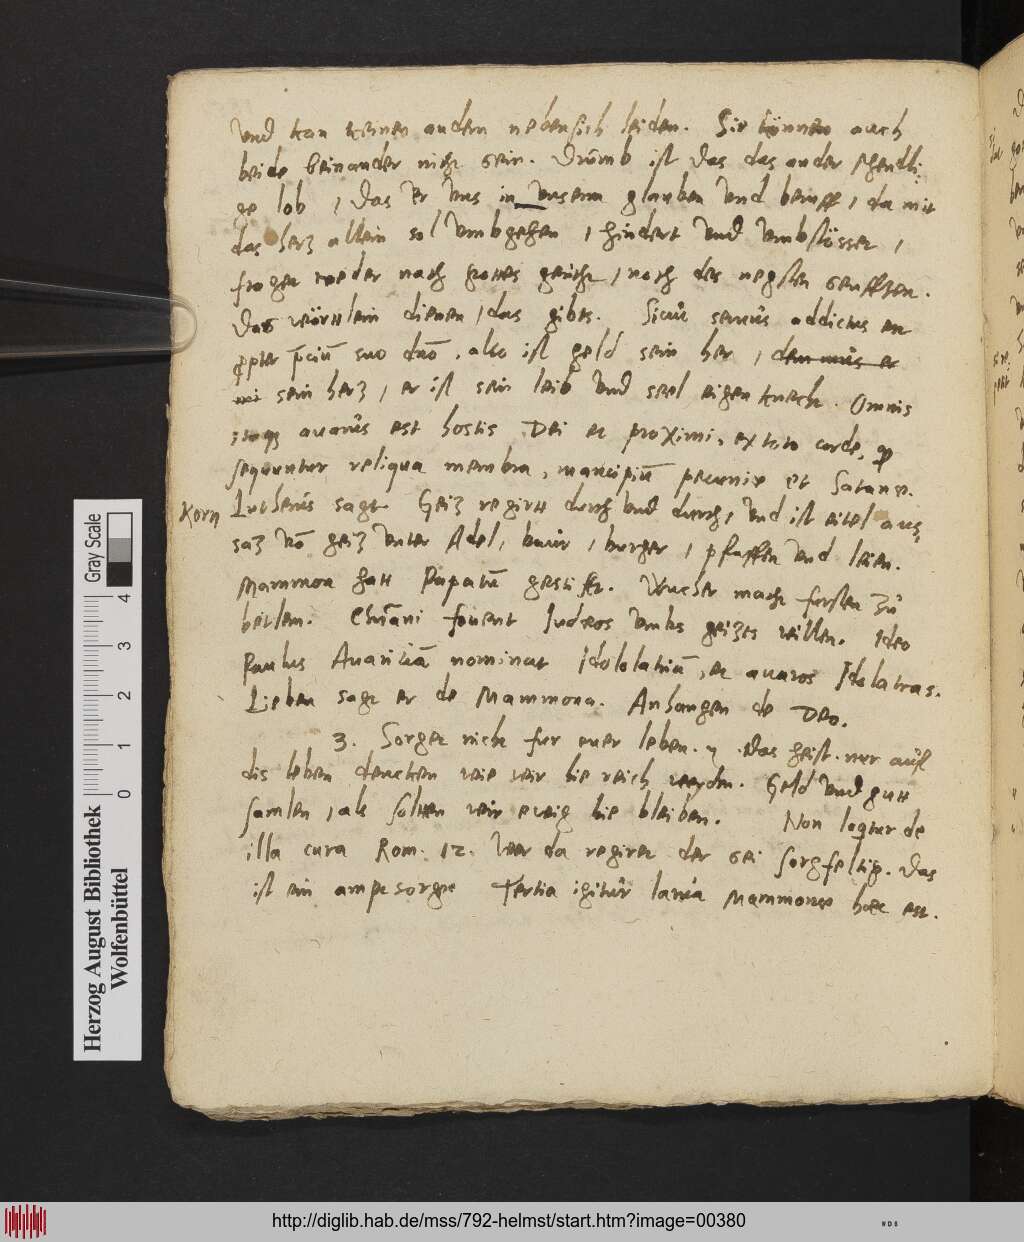 und kan keinen andern nebensich leiden. Sie können auch
beide beinander nicht sein. Drumb ist das das ander schendli
ge lob, das er uns in unserm glauben und beruff, da mit
das herz allein sol umbgehen, hindert und umbstösset,
fragen weder nach Gottes gericht, noch des negsten seufftzen.
Das wörtlein dienen, das gibts. Sicut servus addictus est
propter precium suo dno, also ist geld sein her,
sein herz, er ist sein leib und seel eigen knecht. Omnis
itaq avarus est hostis Dei et proximi, ex toto corde, qd
sequuntur reliqua membra, mancipiū pecuniæ et Satanæ.
Korn
Lutherus sagt Geiz regirtt durch und durch, und ist eitel aus
saz vō geiz unter Adel, baur, burger, pfaffen und leien.
Mammon hatt Papatū gestifft. Wucher macht fursten zu
betlern. Chriāni fovent Iudæos umbs geizes willen. Ideo
Paulus Avaritiā nominat Idololatriā, et avaros Idolatras.
Lieben sagt er de Mammona. Anhangen de Deo.
3. Sorget nicht fur euer leben. Das heist. nur auf
dis leben dencken wie wir hie reich werden. Geld und gutt
samlen, als soltten wir ewig hie bleiben. Non loqtur de
illa cura Rom. 12. Wer da regiret der sei sorgfeltig. Das
ist ein ampt sorge Tertia igitur larva Mammonæ hæc est.
Herzog August Bibliothek
Wolfenbüttel
Gray Scale
0 1 2 3 4
http://diglib.hab.de/mss/792-helmst/start.htm?image=00380